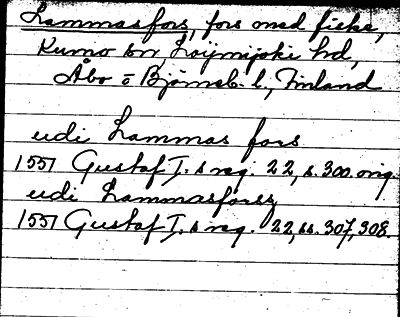 Lammasfors, fors med fiske,
Kumo sn Loijmijoki hd,
Åbo o Björneb. l., Finland
udi Lammas fors
1551 Gustaf I.s reg. 22, s. 300. orig.
udi Lammasforsz
1551 Gustaf I.s reg. 22, ss. 307, 308.